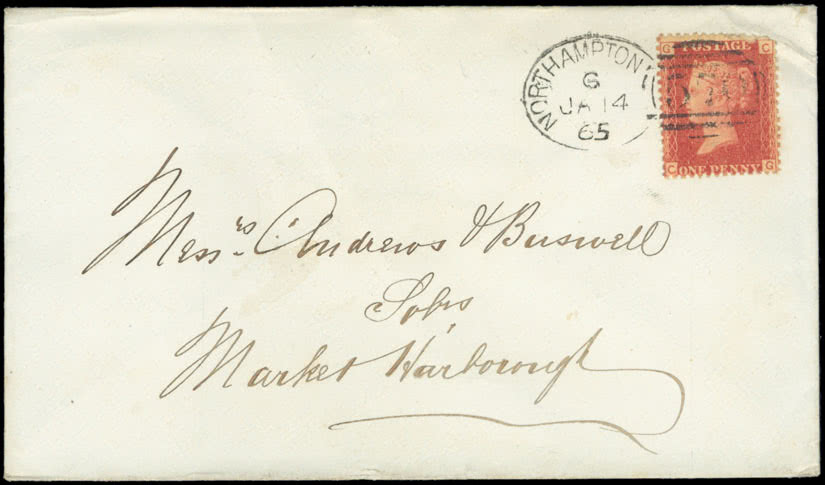 NORTHAMPTON
G
JA 14
65
G POSTAGE C
C ONE PENNY G
Messrs. Andrews & Buswell
Solrs
Market Harborough